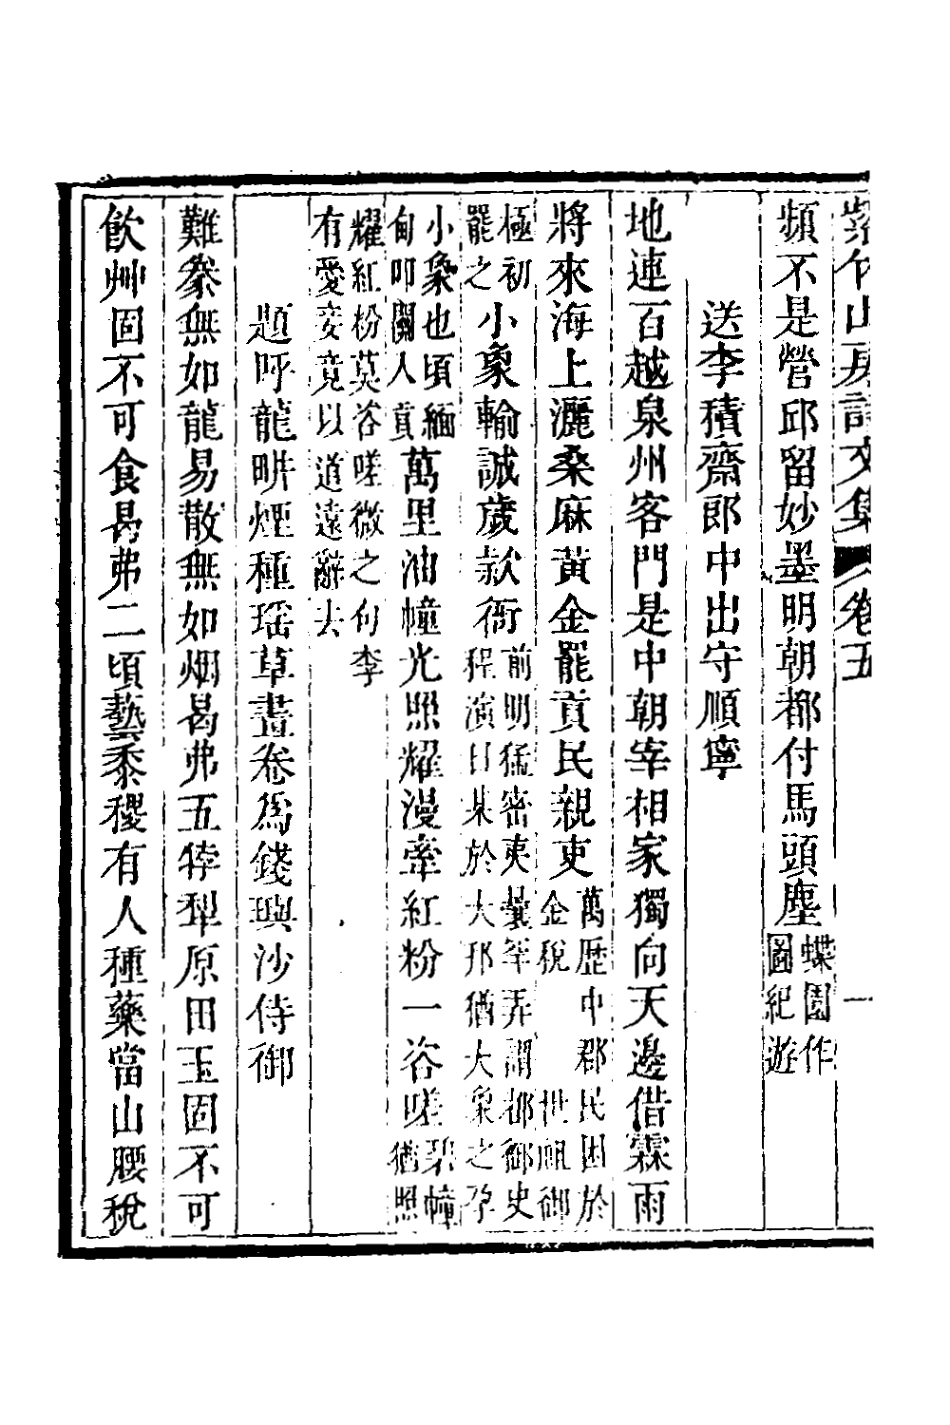 紫竹山房詩文集 卷五 一
頻不是營邱留妙墨明朝都付馬頭塵蝶園作圖紀遊
送李積齋郎中出守順寧
地連百越泉州客門是中朝宰相家獨向天邊借霖雨
將來海上灑桑麻黃金罷貢民親吏萬歷中郡民困於金稅 世祖御
極初罷之小象輸誠歲款衙前明猛密夷曩罕弄謂都御史程演日某於大邦猶大象之孕
小象也頃緬甸叩關人貢萬里油幢光照耀漫牽紅粉一咨嗟碧幢猶照
耀紅粉莫咨嗟微之句李有愛妾竟以道遠辭去
題呼龍畊煙種瑤草畫卷為錢璵沙侍御
難豢無如龍易散無如烟曷弗五犉犁原田玉固不可
飲艸固不可食曷弗二頃藝黍稷有人種藥當山腰稅